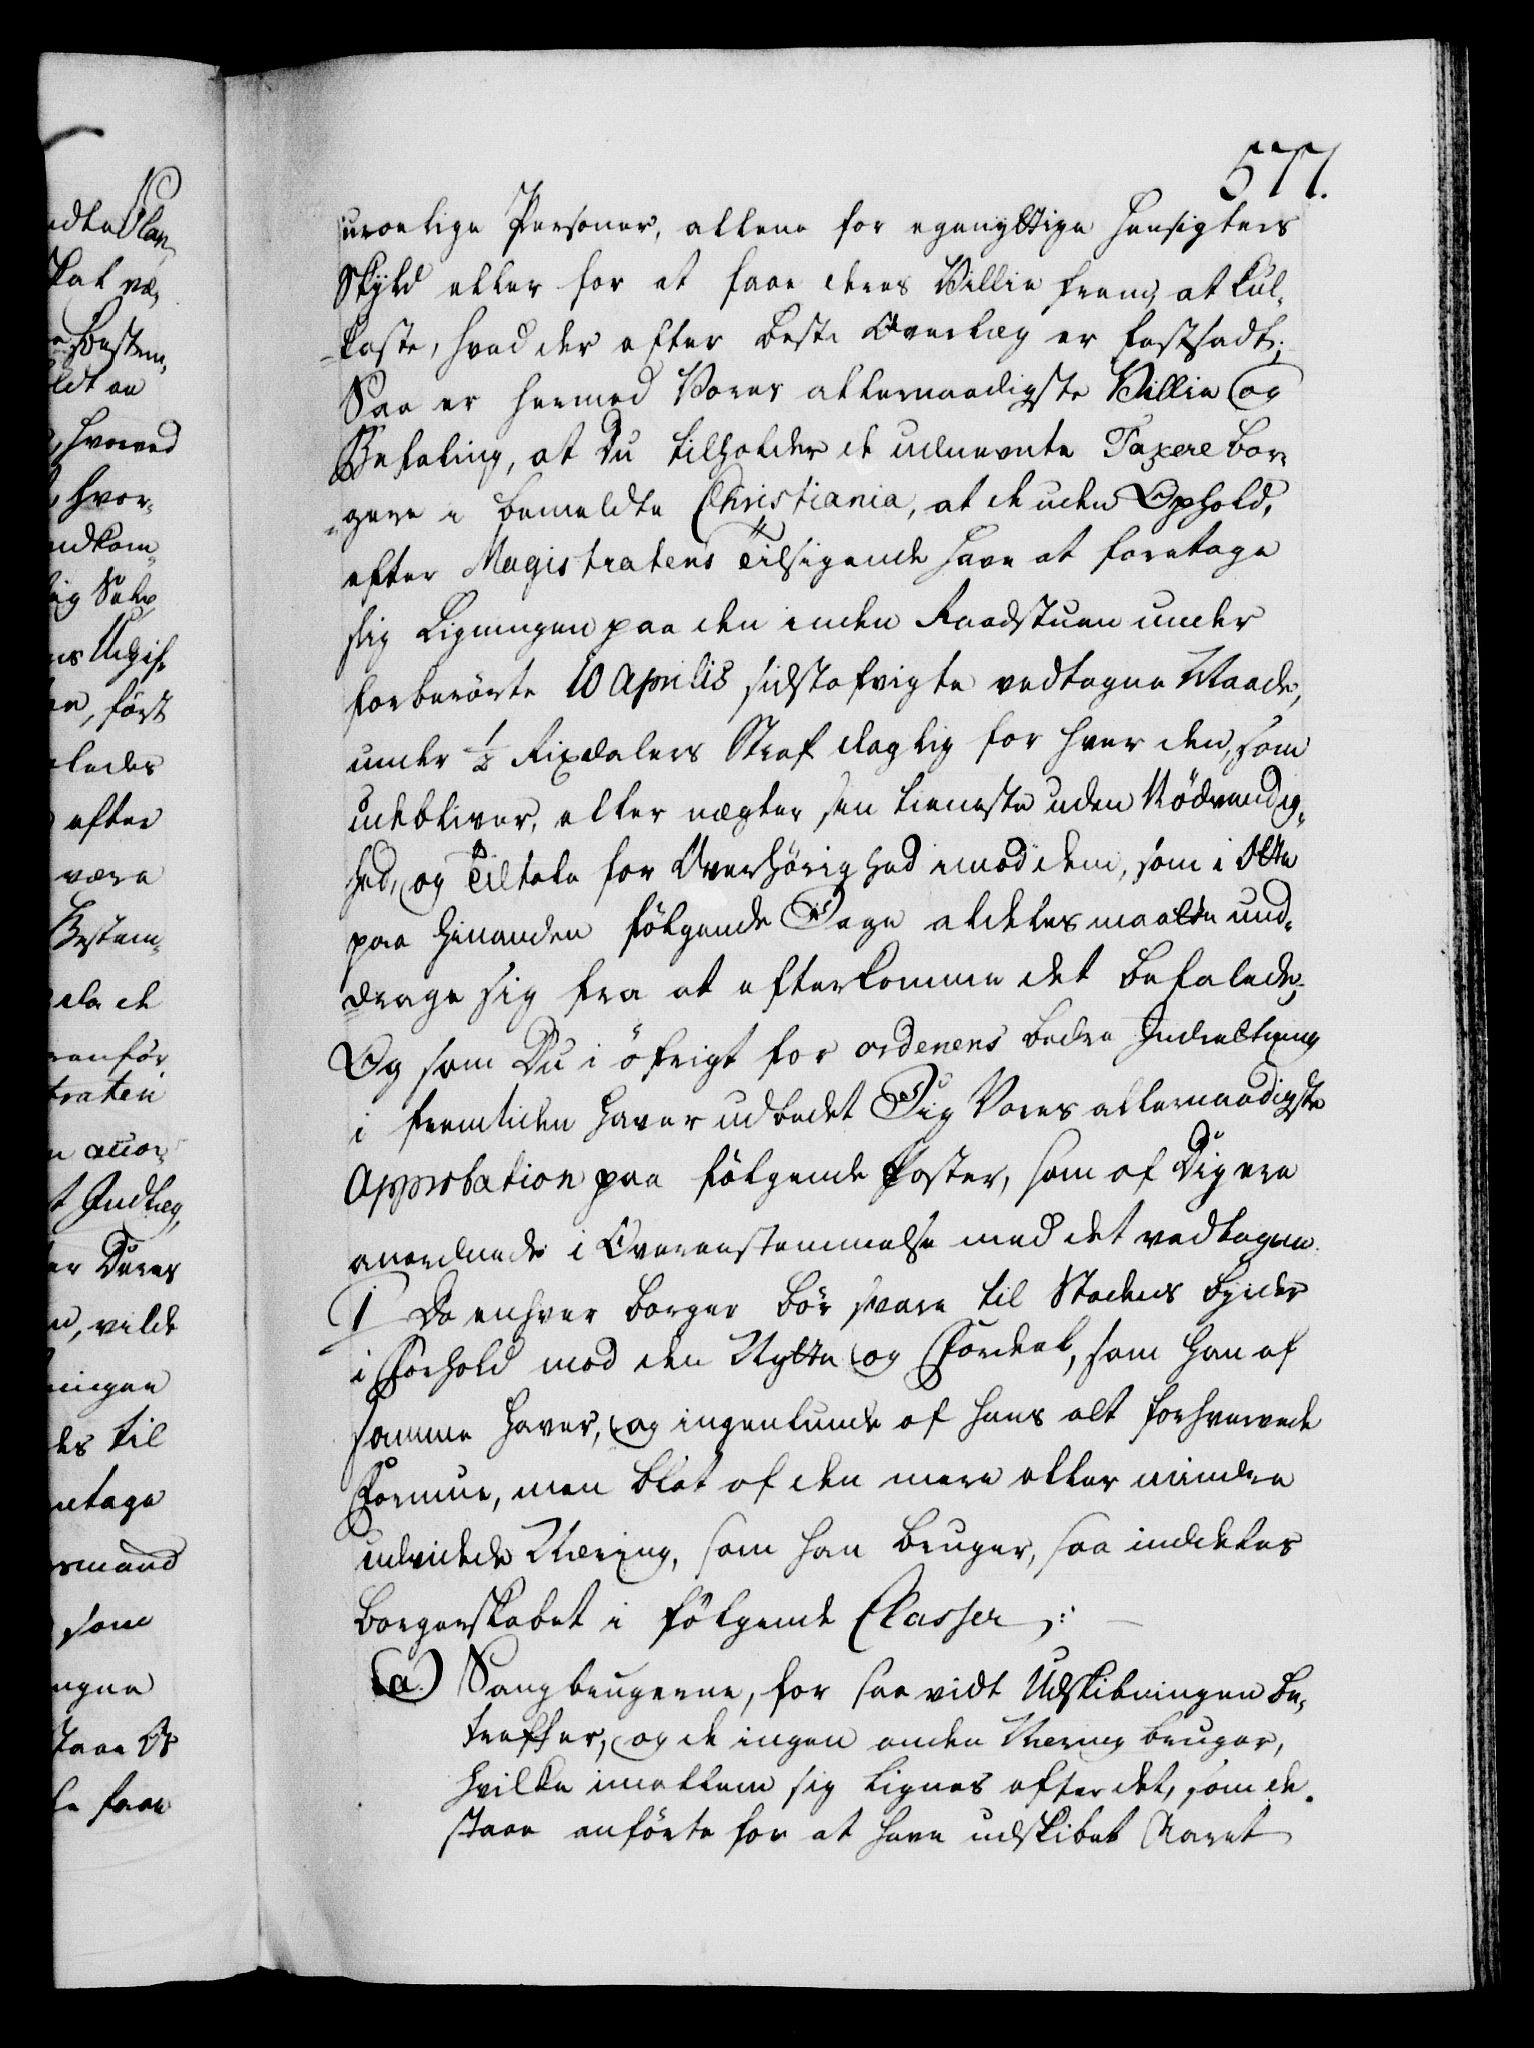 577.
uroelige Personer, allene for egennyttige Hensigters
Skyld eller for at faae deres Villie frem, at kul-
kaste, hvad der efter beste Overlæg er fastsadt;
Saa er hermed Vores allernaadigste Villie og
Befaling, at Du tilholder de udnævnte Taxere bor-
gere i bemeldte Christiania, at de uden Ophold,
efter Magistratens Tilsigende have at foretage
sig Ligningen paa den inden Raadstuen under
forberörte 10 Aprilis sidstafvigte vedtagne Maade,
under 1/2 Rixdalers Straf daglig for hver den, som
udebliver, eller nægter sin tieneste uden Nödvendig-
hed, og Tiltale for Overhörighed imod dem, som i Otte
paa hinanden fölgende Dage aldeles maatte und-
drage sig fra at efterkomme det befalede;
Og som Du i öfrigt for ordenens bedre Indretning
i fremtiden haver udbedet Dig Vores allernaadigste
Approbation paa fölgende Poster, som af Dig ere
anordnede i Overensstemmelse med det vedtagne.
1 Da enhver borger bör svare til Stadens byrder
i Forhold mod den Nytte og Fordeel, som han af
samme haver, og ingenlunde af hans alt forhvervede
Formue, men blot af den mere eller mindre
udvidede Næring, som han bruger, saa inddeles
borgerskabet i fölgende Classer:
a.) Saugbrugerne, for saa vidt Udskibningen be-
treffer, og de ingen anden Næring bruger,
hvilke imellem sig lignes efter det, som de
staae anförte for at have udskibet Aaret